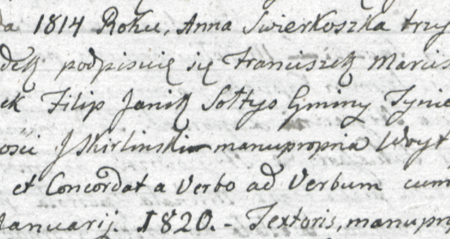 a 1814 Roku, Anna Swierkoszka trzy
podpisuię się Franciszek Marcis
ek Filip Janik Sołtys Gminy Tynie
ości manupropria
et Concordat a Verbo ad Verbum cum
Januarij. 1820. - Textoris, manupr